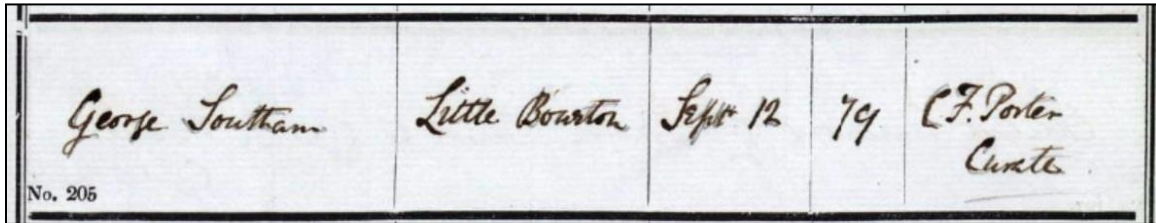 George Southam Little Bourton Septr 12 79 C F. Porter
Curate
No. 205